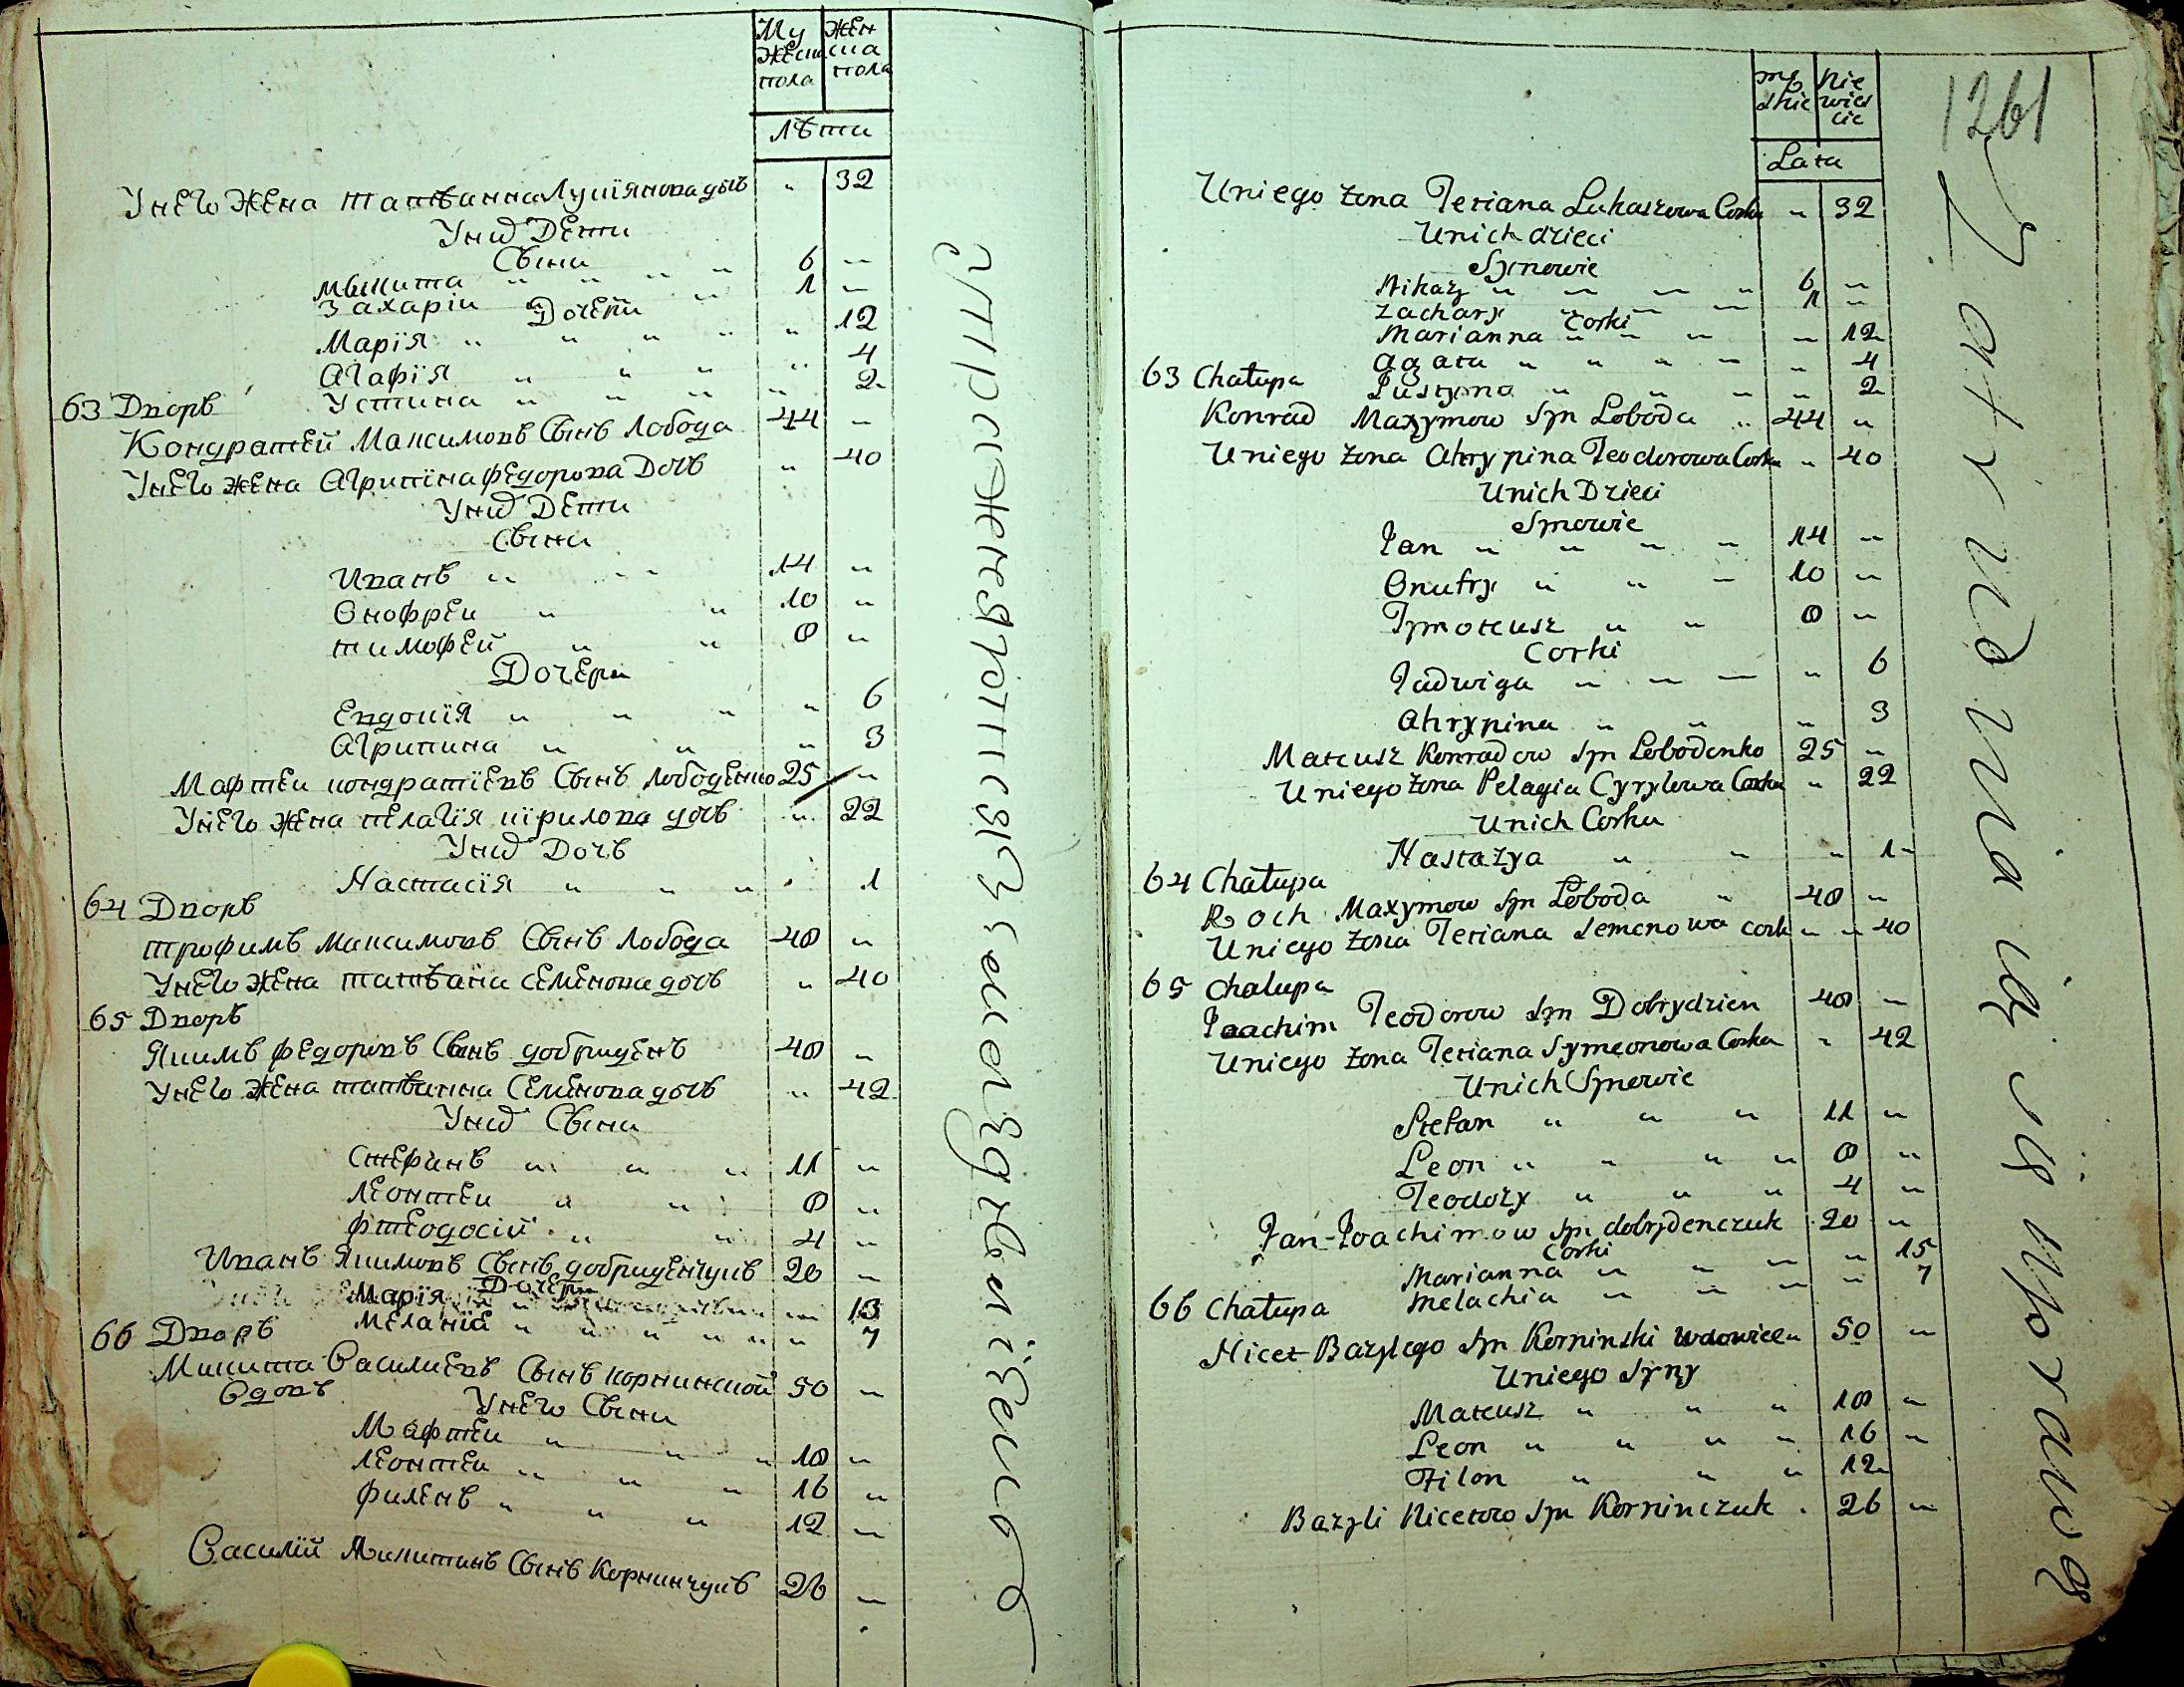 Мужеска пола
Женска пола
Лѣти
У него жена Татѣанна Лукіянова дочь " 32
У них Дети
Сыни
Микита " " " " 6 "
Захаріи " " 1 "
Дочери
Марія " " " " " 12
Агафія " " " " 4
Устина " " " " 2
63 Дворъ
Кондратей Максимовъ Сынъ Лобода 44 "
У него жена Агрипіна Федорова Дочь " 40
У них Дети
Сыни
Иванъ " " " 14 "
Онофреи " " 10 "
Тимофей " " 8 "
Дочери
Евдокія " " " " 6
Агрипина " " " 3
Мафтеи Кондратіевъ Сынъ Лободенко 25 "
У него жена Пелагія Кірилова дочь " 22
У них Дочь
Настасія " " " " 1
64 Дворъ
Трофимъ Максимовъ Сынъ Лобода 48 "
У него жена Татѣана Семенова дочь " 40
65 Дворъ
Якимъ Федоровъ Сынъ Добриденъ 48 "
У него жена Татѣанна Семенова дочь " 42
У них Сыни
Стефанъ " " " 11 "
Леонтеи " " 8 "
Фтеодосій " " 4 "
Иванъ Якимовъ Сынъ Добриденчукъ 20 "
Дочери
Марія " "
Меланія " " " " " " 7
66 Дворъ
Микита Василиевъ Сынъ Корнинской 50 "
Вдовъ
У него Сыни
Мафтеи " " " 18 "
Леонтеи " " " 16 "
Филенъ " " " 12 "
Василій Микитинъ Сынъ Корнинчукъ 26 "
męskie
Niewieście
Lata
U niego żona Teriana Lukaszowa Corka " 32
U nich dzieci
Synowie
Nikazy " " " " 6 "
Zachary " " " 1 "
Corki
Marianna " " " " 12
Agata " " " " " 4
Justyna " " " " 2
63 Chałupa
Konrad Maxymow Syn Loboda " 44 "
U niego żona Ahrypina Teodorowa Corka " 40
U nich Dzieci
Synowie
Jan " " " " 14 "
Onufry " " " 10 "
Tymoteusz " " 8 "
Corki
Jadwiga " " " " 6
Ahrypina " " " 3
Mateusz Konradow Syn Lobodenko 25 "
U niego żona Pelagia Cyrylowa Corka " 22
U nich Corka
Nastazya " " " 1
64 Chałupa
Roch Maxymow Syn Loboda " 48 "
U niego żona Teriana Semenowa cork " " 40
65 Chalupa
Joachim Teodorow Syn Dobrydzien 48 "
U niego żona Teriana Symeonowa Corka " 42
U nich Synowie
Stefan " " " 11 "
Leon " " " " 8 "
Teodozy " " " 4 "
Jan-Joachimow Syn dobrydenczuk 20 "
Corki
Marianna " " " " 15
Melachia " " " " 7
66 Chałupa
Nicet Bazylego Syn Korninski wdowiec " 50 "
U niego Syny
Mateusz " " " 18 "
Leon " " " " 16 "
Filon " " " 12
Bazyli Nicetow Syn Korninczuk " 26 "